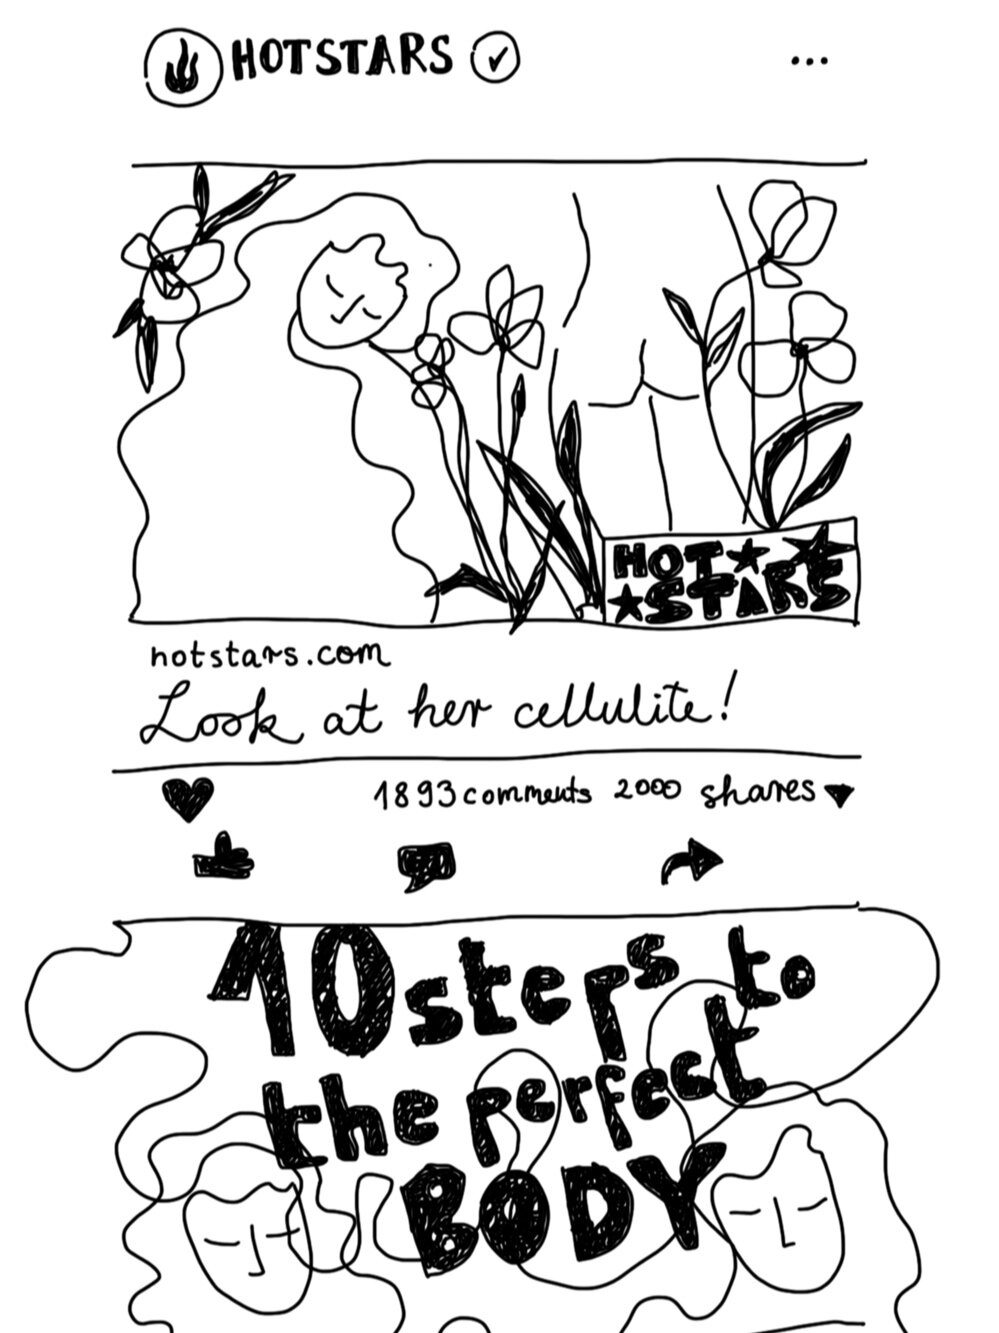 HOTSTARS
HOT
STARS
hotstars.com
Look at her cellulite!
1893 comments 2000 shares
10 steps to
the perfect
BODY